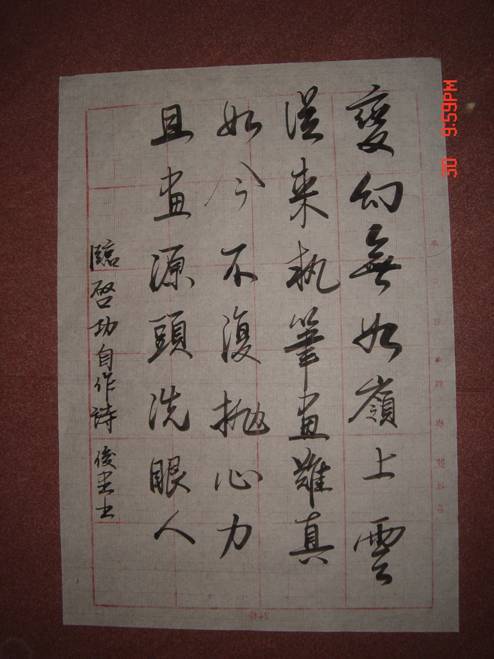 變幻無如嶺上雲
從来執筆畫難真
如今不復拋心力
且畫源頭洗眼人
臨啓功自作詩 俊
30 9:59PM